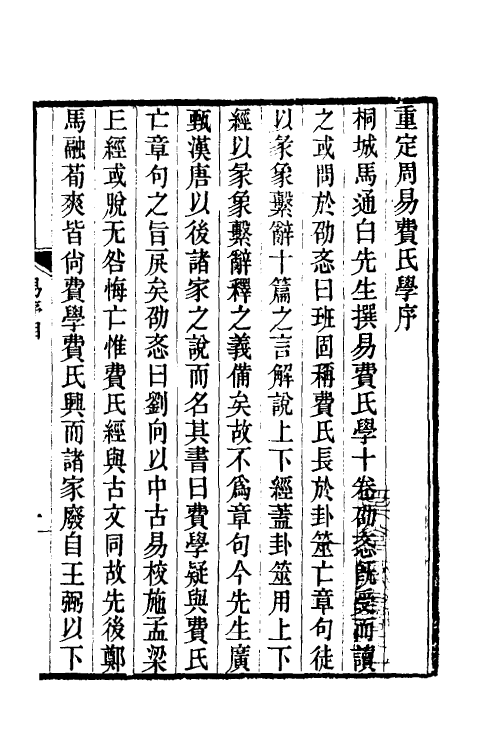 重定周易費氏學序
桐城馬通白先生撰易費氏學十卷劭忞旣受而讀
之或問於劭忞曰班固稱費氏長於卦筮亡章句徒
以彖象繫辭十篇之言解說上下經蓋卦筮用上下
經以彖象繫辭釋之義備矣故不爲章句今先生廣
甄漢唐以後諸家之說而名其書曰費學疑與費氏
亡章句之旨戾矣劭忞曰劉向以中古易校施孟梁
丘經或脫无咎悔亡惟費氏經與古文同故先後鄭
馬融荀爽皆尙費學費氏興而諸家廢自王弼以下